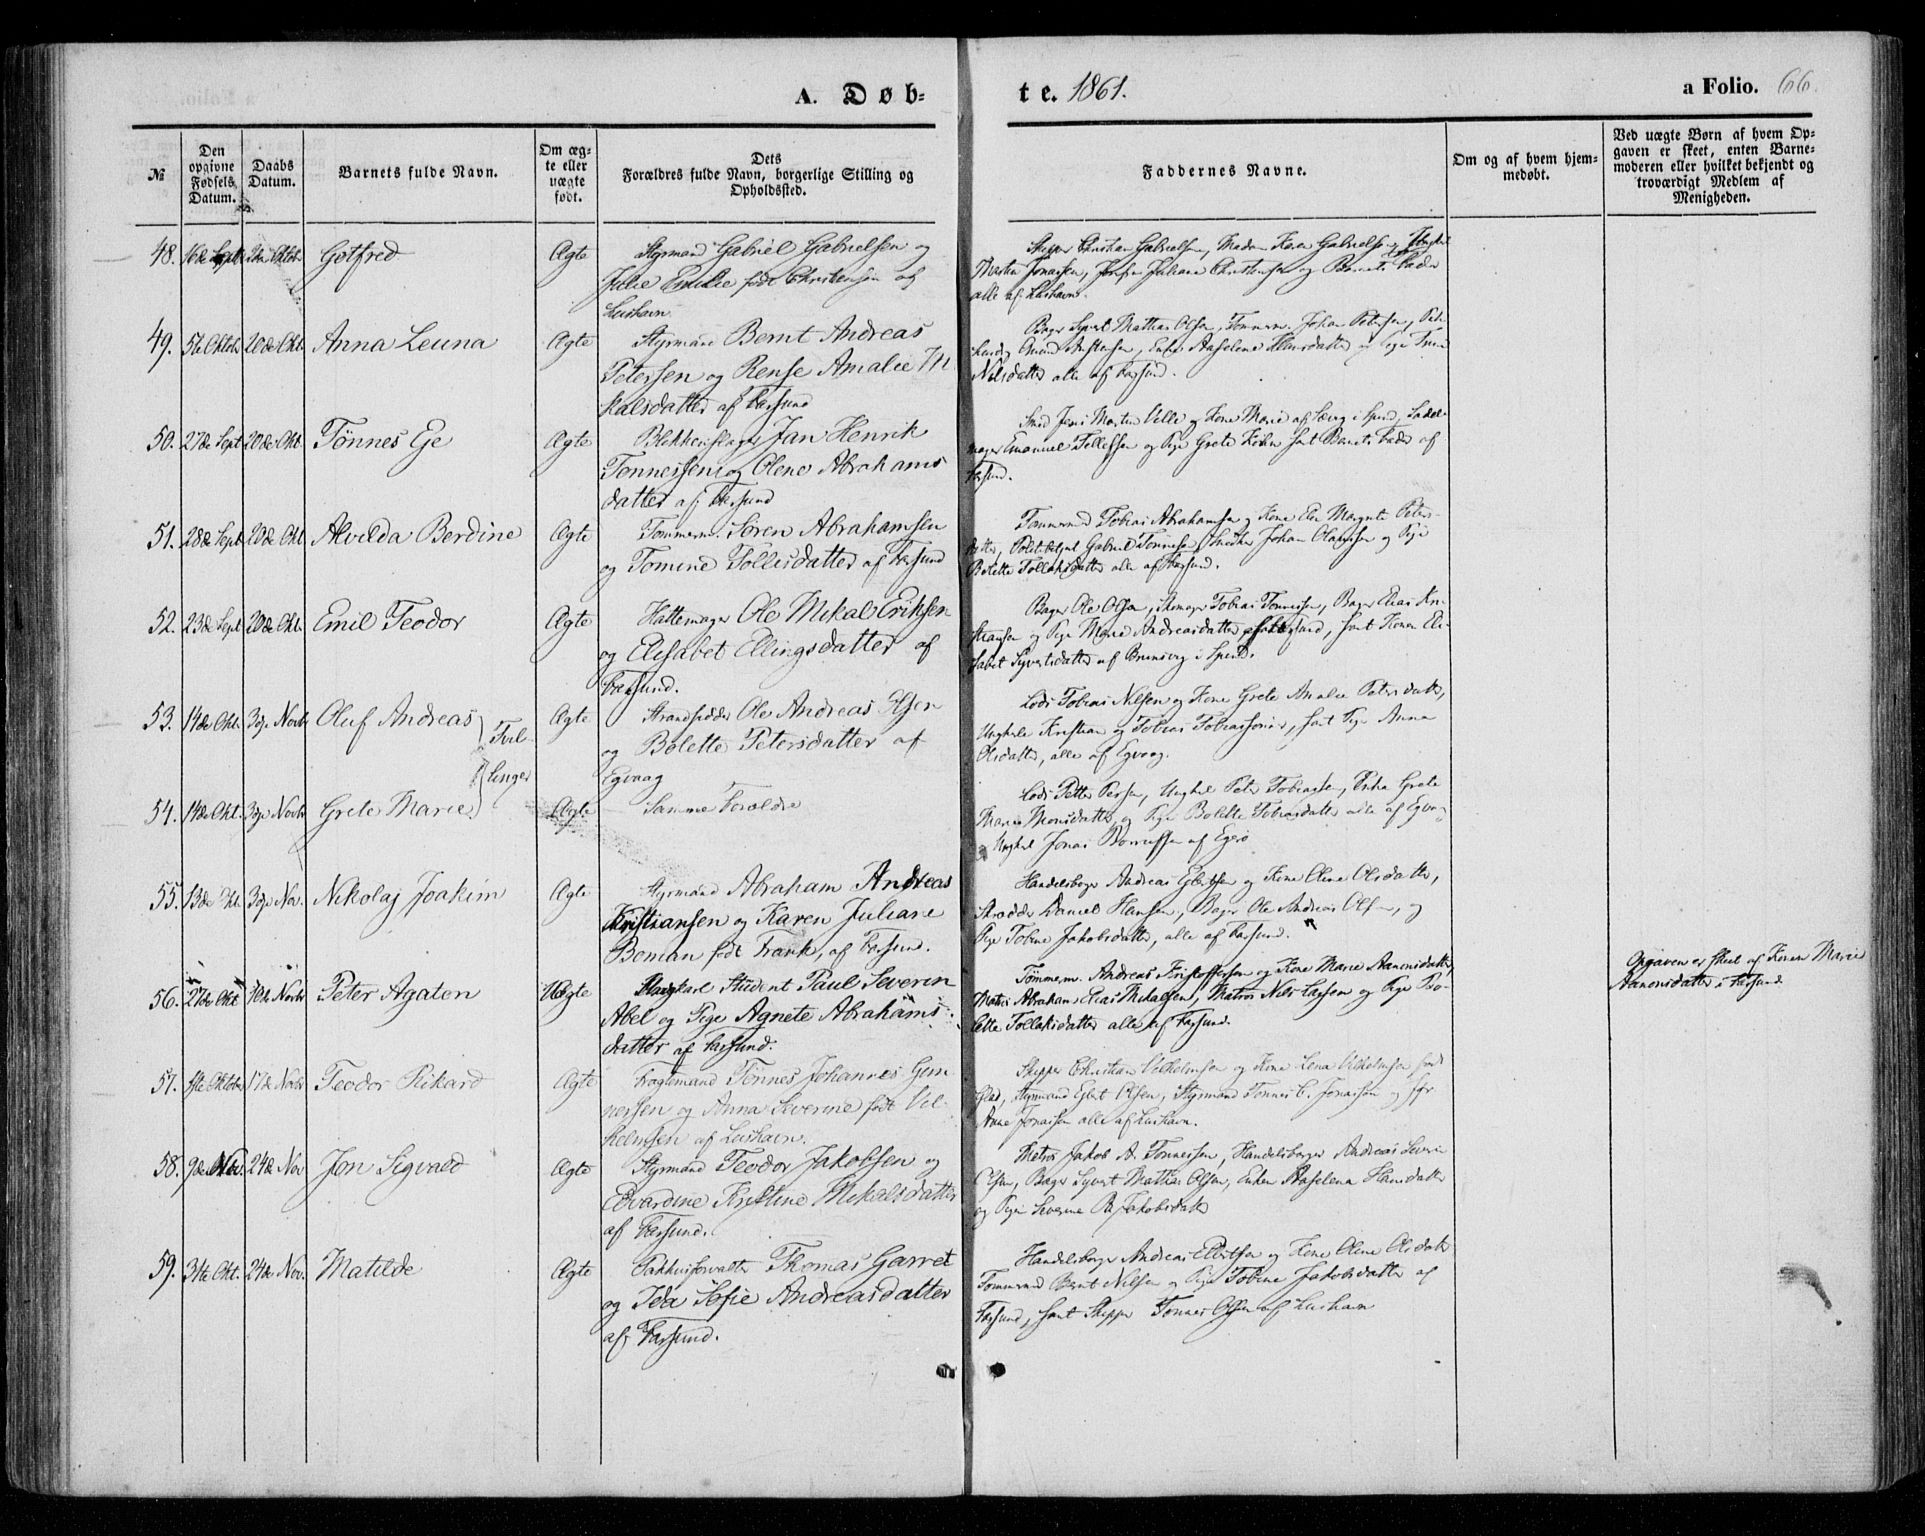 A. Døb-
t e. 1861.
a Folio. 66.
№
Den opgivne Fødsels Datum.
Daabs Datum.
Barnets fulde Navn.
Om ægte eller uægte født.
Dets Forældres fulde Navn, borgerlige Stilling og Opholdssted.
Faddernes Navne.
Om og af hvem hjemmedøbt.
Ved uægte Børn af hvem Opgaven er skeet, enten Barnemoderen eller hvilket bekjendt og troværdigt Medlem af Menigheden.
48. 16de Sept. Gotfred Ægte Styrmand Gabriel Gabrielsen og
Julie Emilie født Christensen af
Lushavn
Skipper Christian Gabrielsen, Madam Karen Gabrielsen,
Martin Jonassen, Juliane Christensen og Barnets Fader
alle af Lushavn.
49. 5te Oktob. 20de Okt. Anna Leuna Ægte Styrmand Bernt Andreas
Petersen og Rense Amalie Mi
kalsdatter af Farsund
Bager Syvert Mathias Olsen, Tømmerm. Johan Petersen,
Enke Aaselene Hansdatter
Nilsdatter alle af Farsund.
50. 27de Sept 20de Okt. Tønnes Eje Ægte Blikkenslager Jan Henrik
Tønnessen og Olene Abrahams
datter af Farsund
Smed Jens Morten Ville og Kone Marie af i Spind, Sadel-
mager Emanuel Tollefsen og Pige Grete samt Barnets Fader af
Farsund.
51. 28de Sept 20de Okt. Alvilda Berdine Ægte Tømmerm. Søren Abrahamsen
og Tomine Tollisdatter af Farsund
Tømmermd Tobias Abrahamsen og Kone Else Margrete Peters-
datter, Politibetjent Gabriel Tønnessen, Snedker Johan Olaussen og Pige
Bolette Tollaksdatter alle af Farsund.
52. 23de Sept 20de Okt. Emil Teodor Ægte Hattemager Ole Mikal Eriksen
og Elisabet Ellingsdatter af
Farsund.
Bager Ole Olsen, Skomager Tobias Tønnessen, Bager Elias Kri-
stiansen og Pige Marie Andreasdatter af Farsund, samt Konen Eli-
sabet Syvertsdatter af i Spind.
53. 14de Okt. 3die Novbr Oluf Andreas Ægte Strandsidder Ole Andreas Olsen
Tvil-
og Bolette Petersdatter af
linger
Egvaag
Lods Tobias Nilsen og Kone Grete Amalie Petersdatter,
Ungkarle Kristian og Tobias Tobiassønner, samt Pige Anna
Olsdatter, alle af Egvaag.
54. 14de Okt. 3die Novbr Grete Marie Ægte Samme Forældre
Lods Petter Persen, Ungkarl Peter Tobiassen, Enke Grete
Marie Monsdatter, og Pige Bolette Tobiasdatter alle af Egvaag
Ungkarl Jonas af Egerø
55. 13de Okt. 3die Nov. Nikolaj Joakim Ægte Styrmand Abraham Andreas
Kristiansen og Karen Juliane
Boman født Frank, af Farsund.
Handelsborger Andreas Egbertsen og Kone Olene Olsdatter,
Skrædder Daniel Hansen, Bager Ole Andreas Olsen, og
Pige Tobine Jakobsdatter, alle af Farsund.
56. 27de Okt 10de Novbr Peter Agaton Uægte Ungkarl Student Paul Severin
Abel og Pige Agnete Abrahams-
datter af Farsund.
Tømmerm. Andreas Kristoffersen og Kone Marie Aanonsdatter,
Matros Abraham Elias Mikalsen, Matros Nils Larsson og Pige Bo-
lette Tollaksdatter alle af Farsund.
Opgaven er skeet af Konen Marie
Aanonsdatter i Farsund.
57. 1ste Oktober 17de Novbr Teodor Rikard Ægte Tønnes Johannes Gun
nersen og Anna Severine født Vil-
helmsen af Lushavn.
Skipper Christian Vilhelmsen og Kone Lena Vilhelmsen født
Glad, Styrmand Egbert Olsen, Styrmand Tønnes C. Jonassen og
Anne Jonassen alle af Lushavn.
58. 9de Nov. 24de Nov Jon Sigvald Ægte Styrmand Teodor Jakobsen og
Edvardine Kristine Mikalsdatter
af Farsund.
Matros Jakob A. Tønnessen, Handelsborger Andreas Severin
Olsen, Bager Syvert Mathias Olsen, Enken Aaselena Hansdatter
og Pige Severine B. Jakobsdatter
59. 31te Okt. 24de Nov. Matilde Ægte Pakhusforvalter Thomas Garret
og Ida Sofie Andreasdatter
af Farsund.
Handelsborger Andreas Egbertsen og Kone Olene Olsdatter
Tømmermd Bernt Nilsen og Pige Tobine Jakobsdatter af
Farsund, samt Skipper Tønnes Olsen af Lushavn